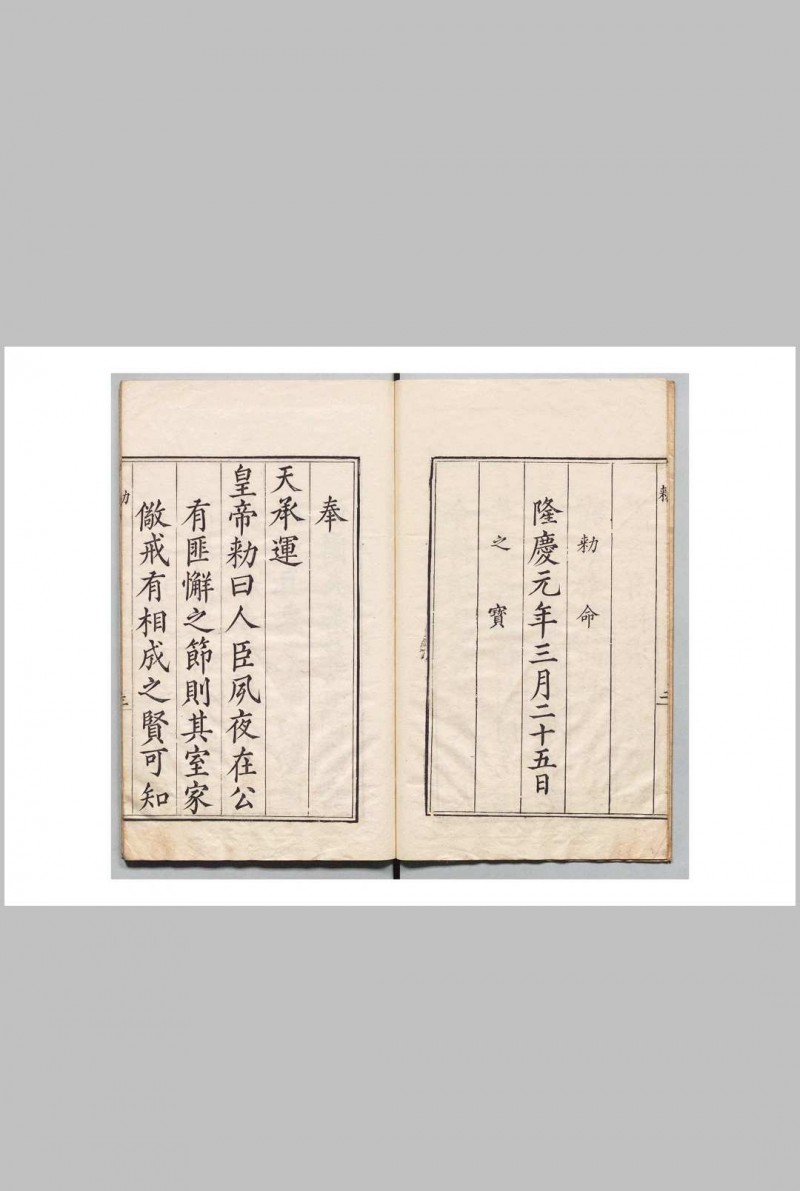 二
勅命
隆慶元年三月二十五日
之寶
奉
天承運
皇帝勅曰人臣夙夜在公
有匪懈之節則其室家
儆戒有相成之賢可知